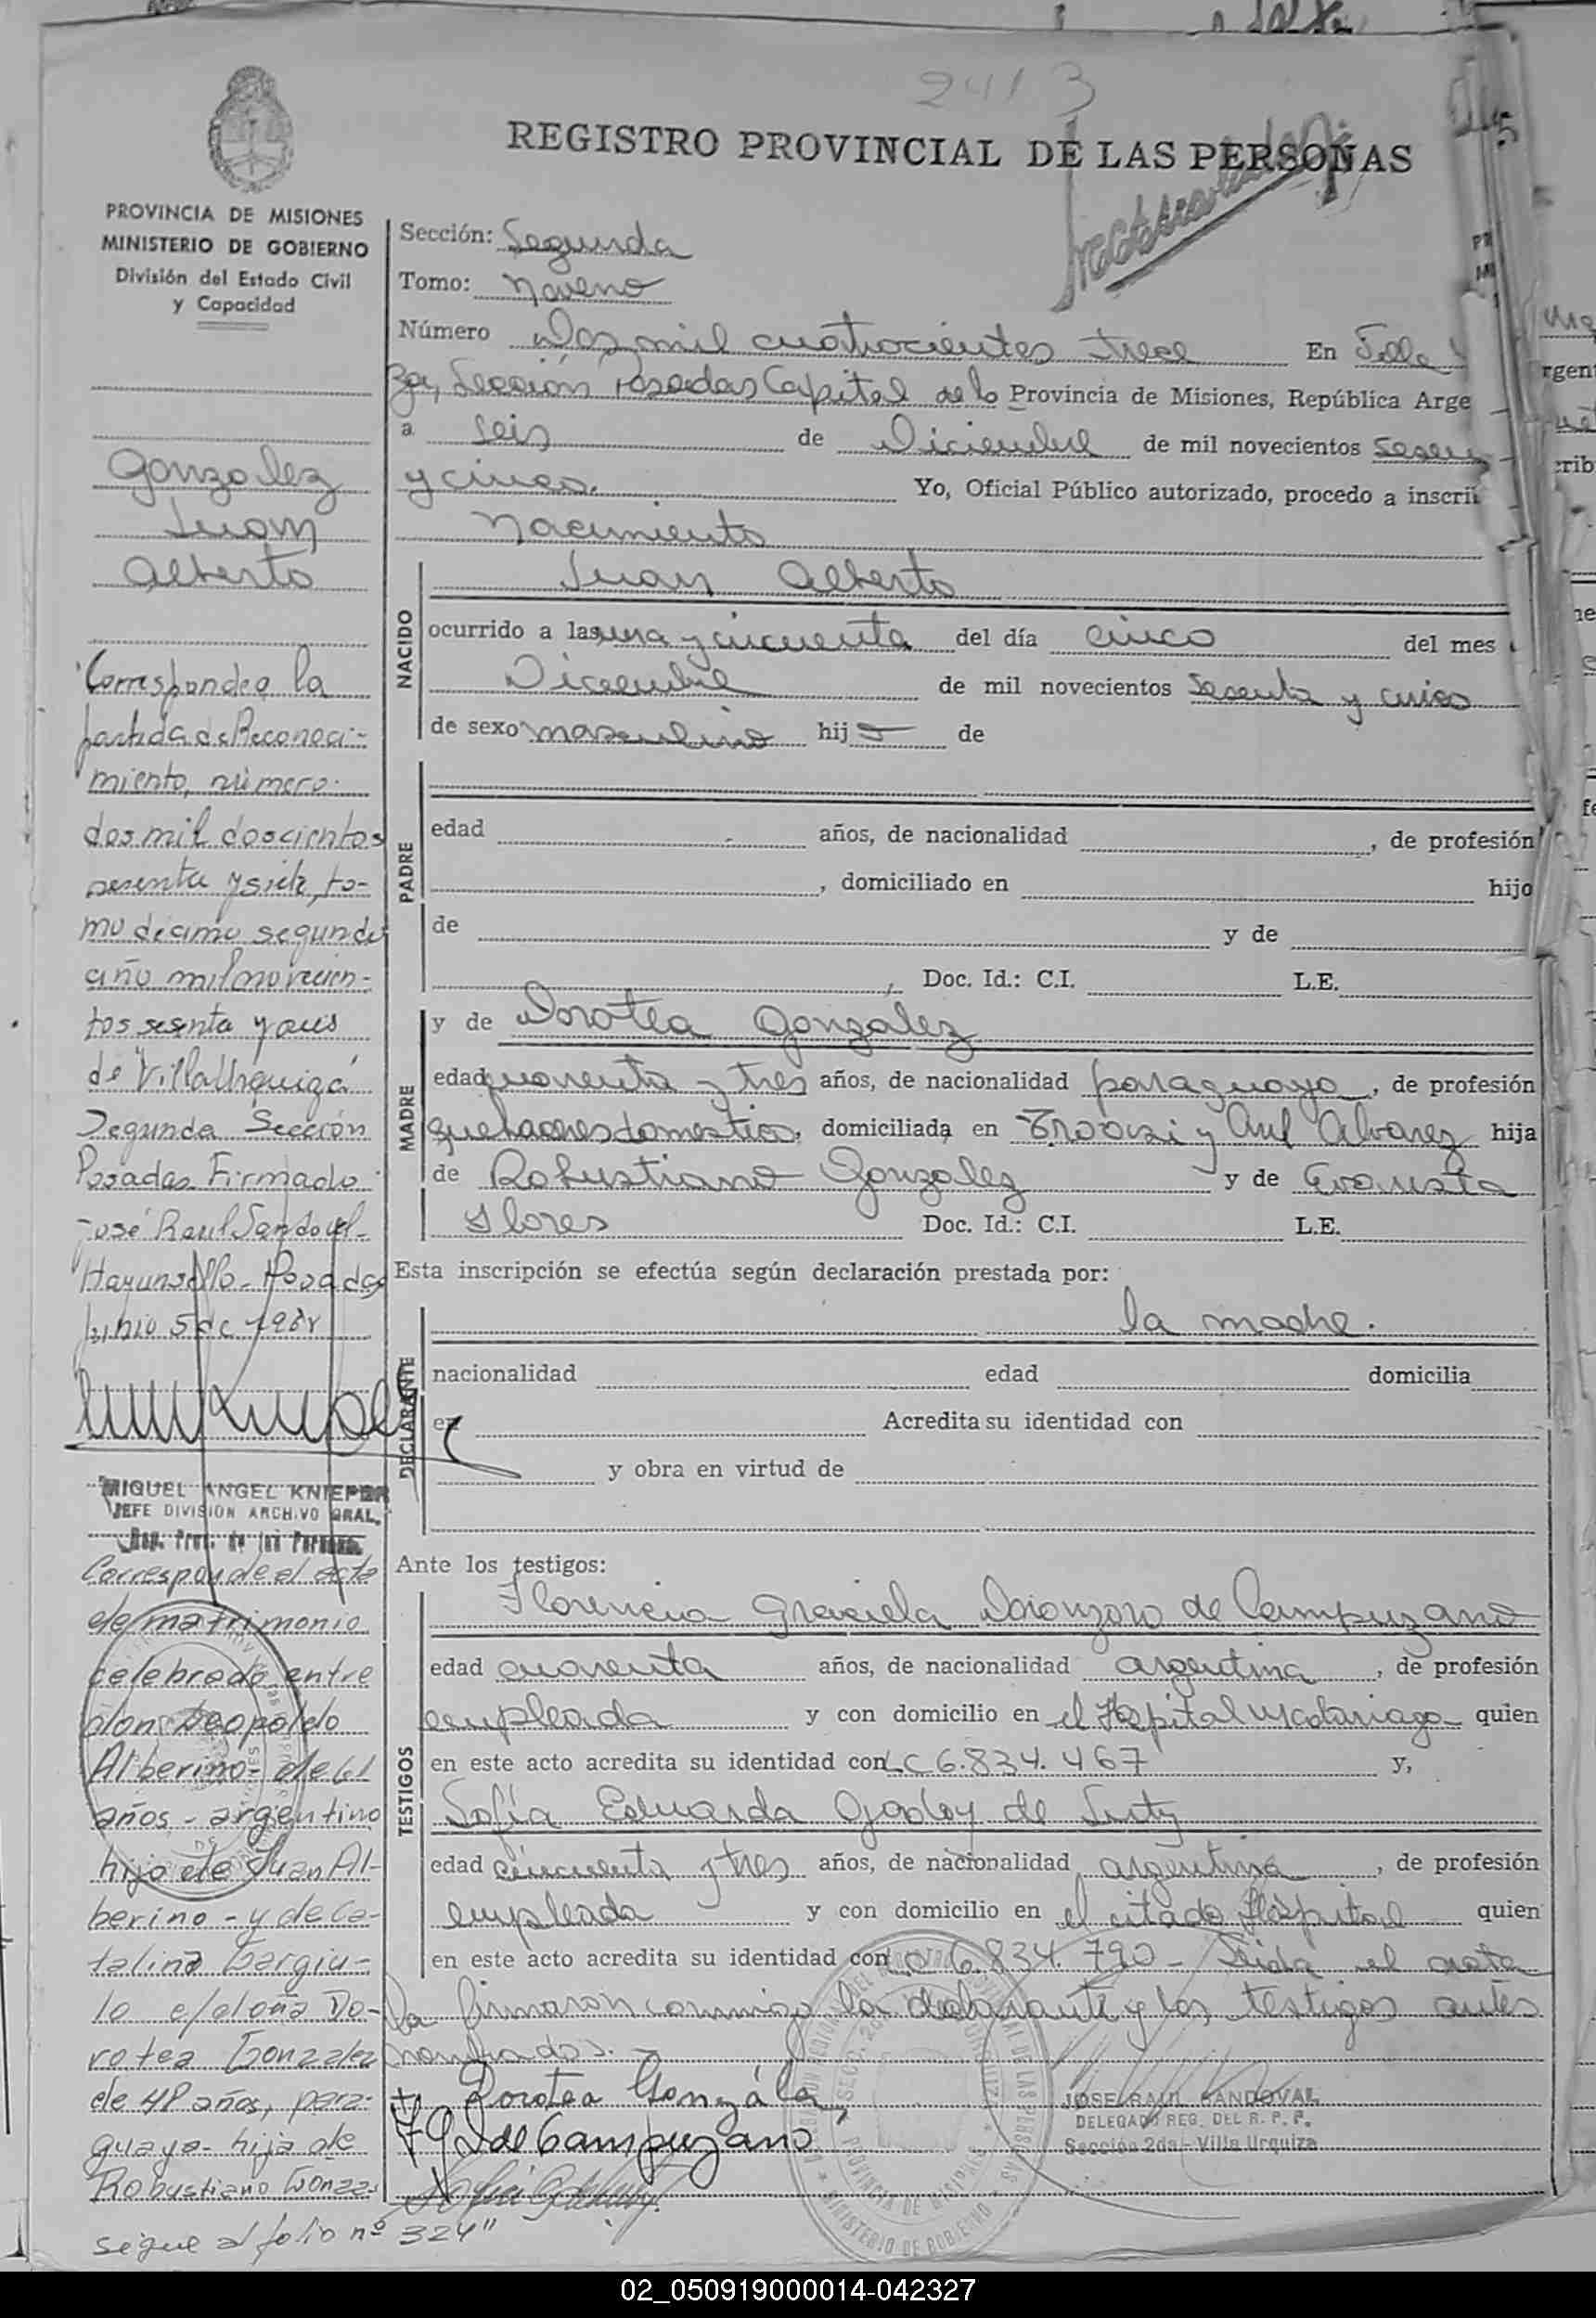 2413
REGISTRO PROVINCIAL DE LAS PERSONAS
PROVINCIA DE MISIONES
MINISTERIO DE GOBIERNO
División del Estado Civil
y Capacidad
Gonzalez
Juan
Alberto
Corresponde a la
partida de Reconoci-
miento, número
dos mil doscientos
sesenta y siete, to-
mo decimo segundo
año mil novecien-
tos sesenta y
de Villa Urquiza
Segunda Sección
Posadas Firmado
José Raul Sandoval-
Posadas
Junio 5 de
MIGUEL ANGEL KNIEPER
JEFE DIVISION ARCHIVO GRAL.
Rep. Prov. de las Personas
Corresponde el acta
de matrimonio
celebrado entre
don Leopoldo
Alberino- de 61
años - argentino
hijo de Juan Al-
berino - y de Ca-
talina Gargiu-
lo c/ doña Do-
rotea Gonzalez
de 48 años, para-
guaya - hija de
Robustiano Gonza-
sigue al folio nº 324"
Sección: Segunda
Tomo: Noveno
Número Dos mil cuatrocientos trece En Villa
Sección Posadas Capital de la Provincia de Misiones, República Arge
a seis de Diciembre de mil novecientos sesen
y cinco. Yo, Oficial Público autorizado, procedo a inscri
Nacimiento
NACIDO
Juan Alberto
ocurrido a las una y cincuenta del día cinco del mes
Diciembre de mil novecientos sesenta y cinco
de sexo masculino hijo de
PADRE
edad años, de nacionalidad , de profesión
, domiciliado en hijo
de y de
Doc. Id.: C.I. L.E.
MADRE
y de Dorotea Gonzalez
edad cuarenta y tres años, de nacionalidad paraguaya, de profesión
quehaceres domesticos, domiciliada en y Alvarez hija
de Robustiano Gonzalez y de Evarista
Flores Doc. Id.: C.I. L.E.
Esta inscripción se efectúa según declaración prestada por:
DECLARANTE
la madre.
nacionalidad edad domicilia
en Acredita su identidad con
y obra en virtud de
Ante los testigos:
TESTIGOS
Florencia Graciela de Campuzano
edad cuarenta años, de nacionalidad argentina, de profesión
empleada y con domicilio en el Hospital Madariaga quien
en este acto acredita su identidad con LC 6.834.467 y,
Sofía Eduarda Godoy de
edad cincuenta y tres años, de nacionalidad argentina, de profesión
empleada y con domicilio en el citado Hospital quien
en este acto acredita su identidad con 6.834.790 - Leida el acta
la firmaron conmigo la declarante y los testigos antes
nombrados.
Dorotea Gonzále
de Campuzano
JOSE RAUL SANDOVAL
DELEGADO REG. DEL R. P. P.
Sección 2da - Villa Urquiza
02_050919000014-042327